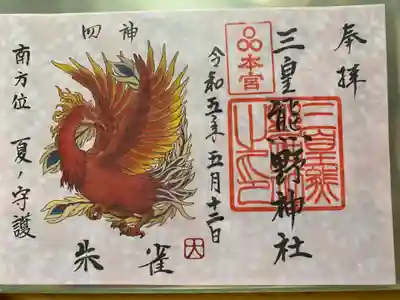 奉拝
三皇熊野神社
本宮
令和五年五月十二日
四神
朱雀
南方位 夏ノ守護